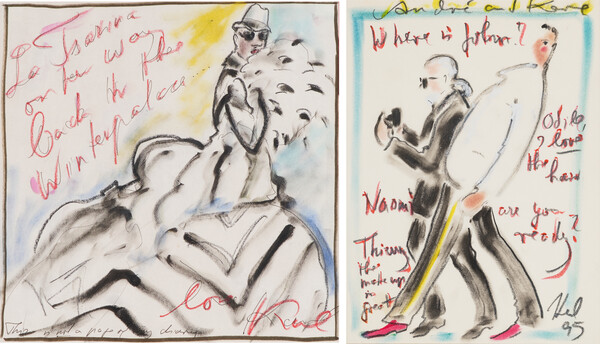 La Tsarina
on her way
back to the
Winterpalace....
love Karl
This is not a page of my diary
André and Karl
Where is John?
Odile,
I love
the hair
Naomi
are you
ready?
Thierry
the make up
is
great
95